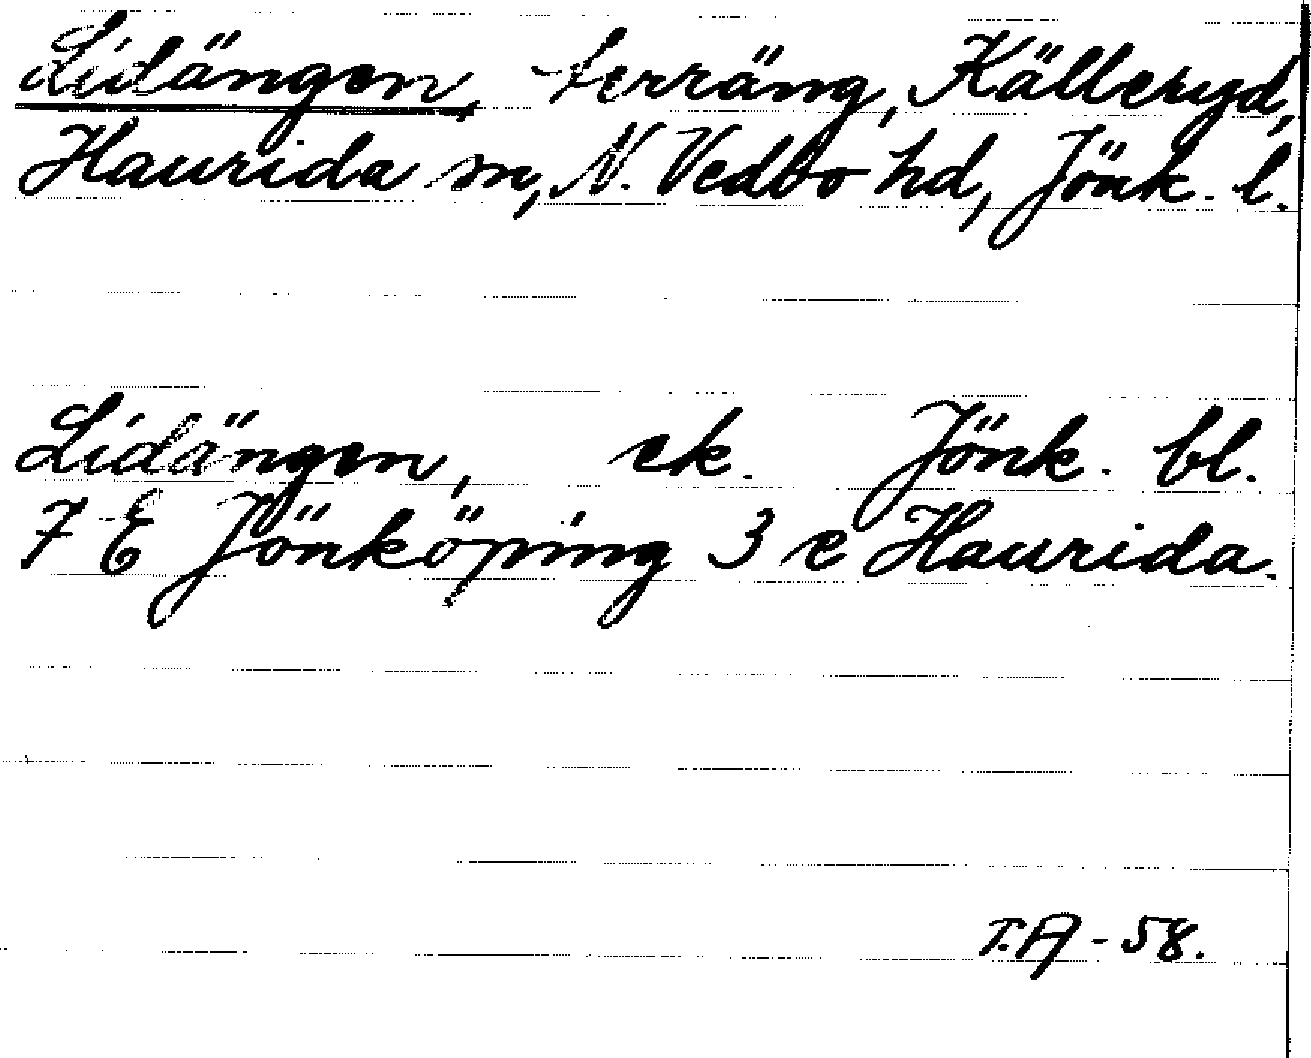 Lidängen, terräng, Källeryd,
Haurida sn, N. Vedbo hd, Jönk. l.
Lidängen, ek. Jönk. bl.
7 E Jönköping 3 e Haurida.
T.A - 58.